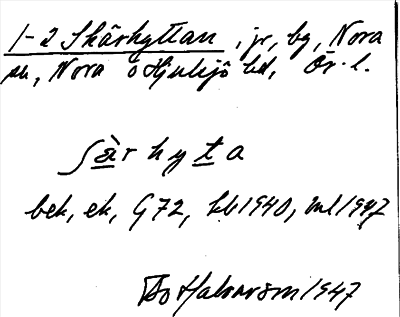 1-2 Skärhyttan, jr, bg, Nora
sn, Nora o Hjulsjö bd, Ör. l.
ʃàr hyta
bek, ek, G72, kb1940, ml1947
Bo Halvarson 1947